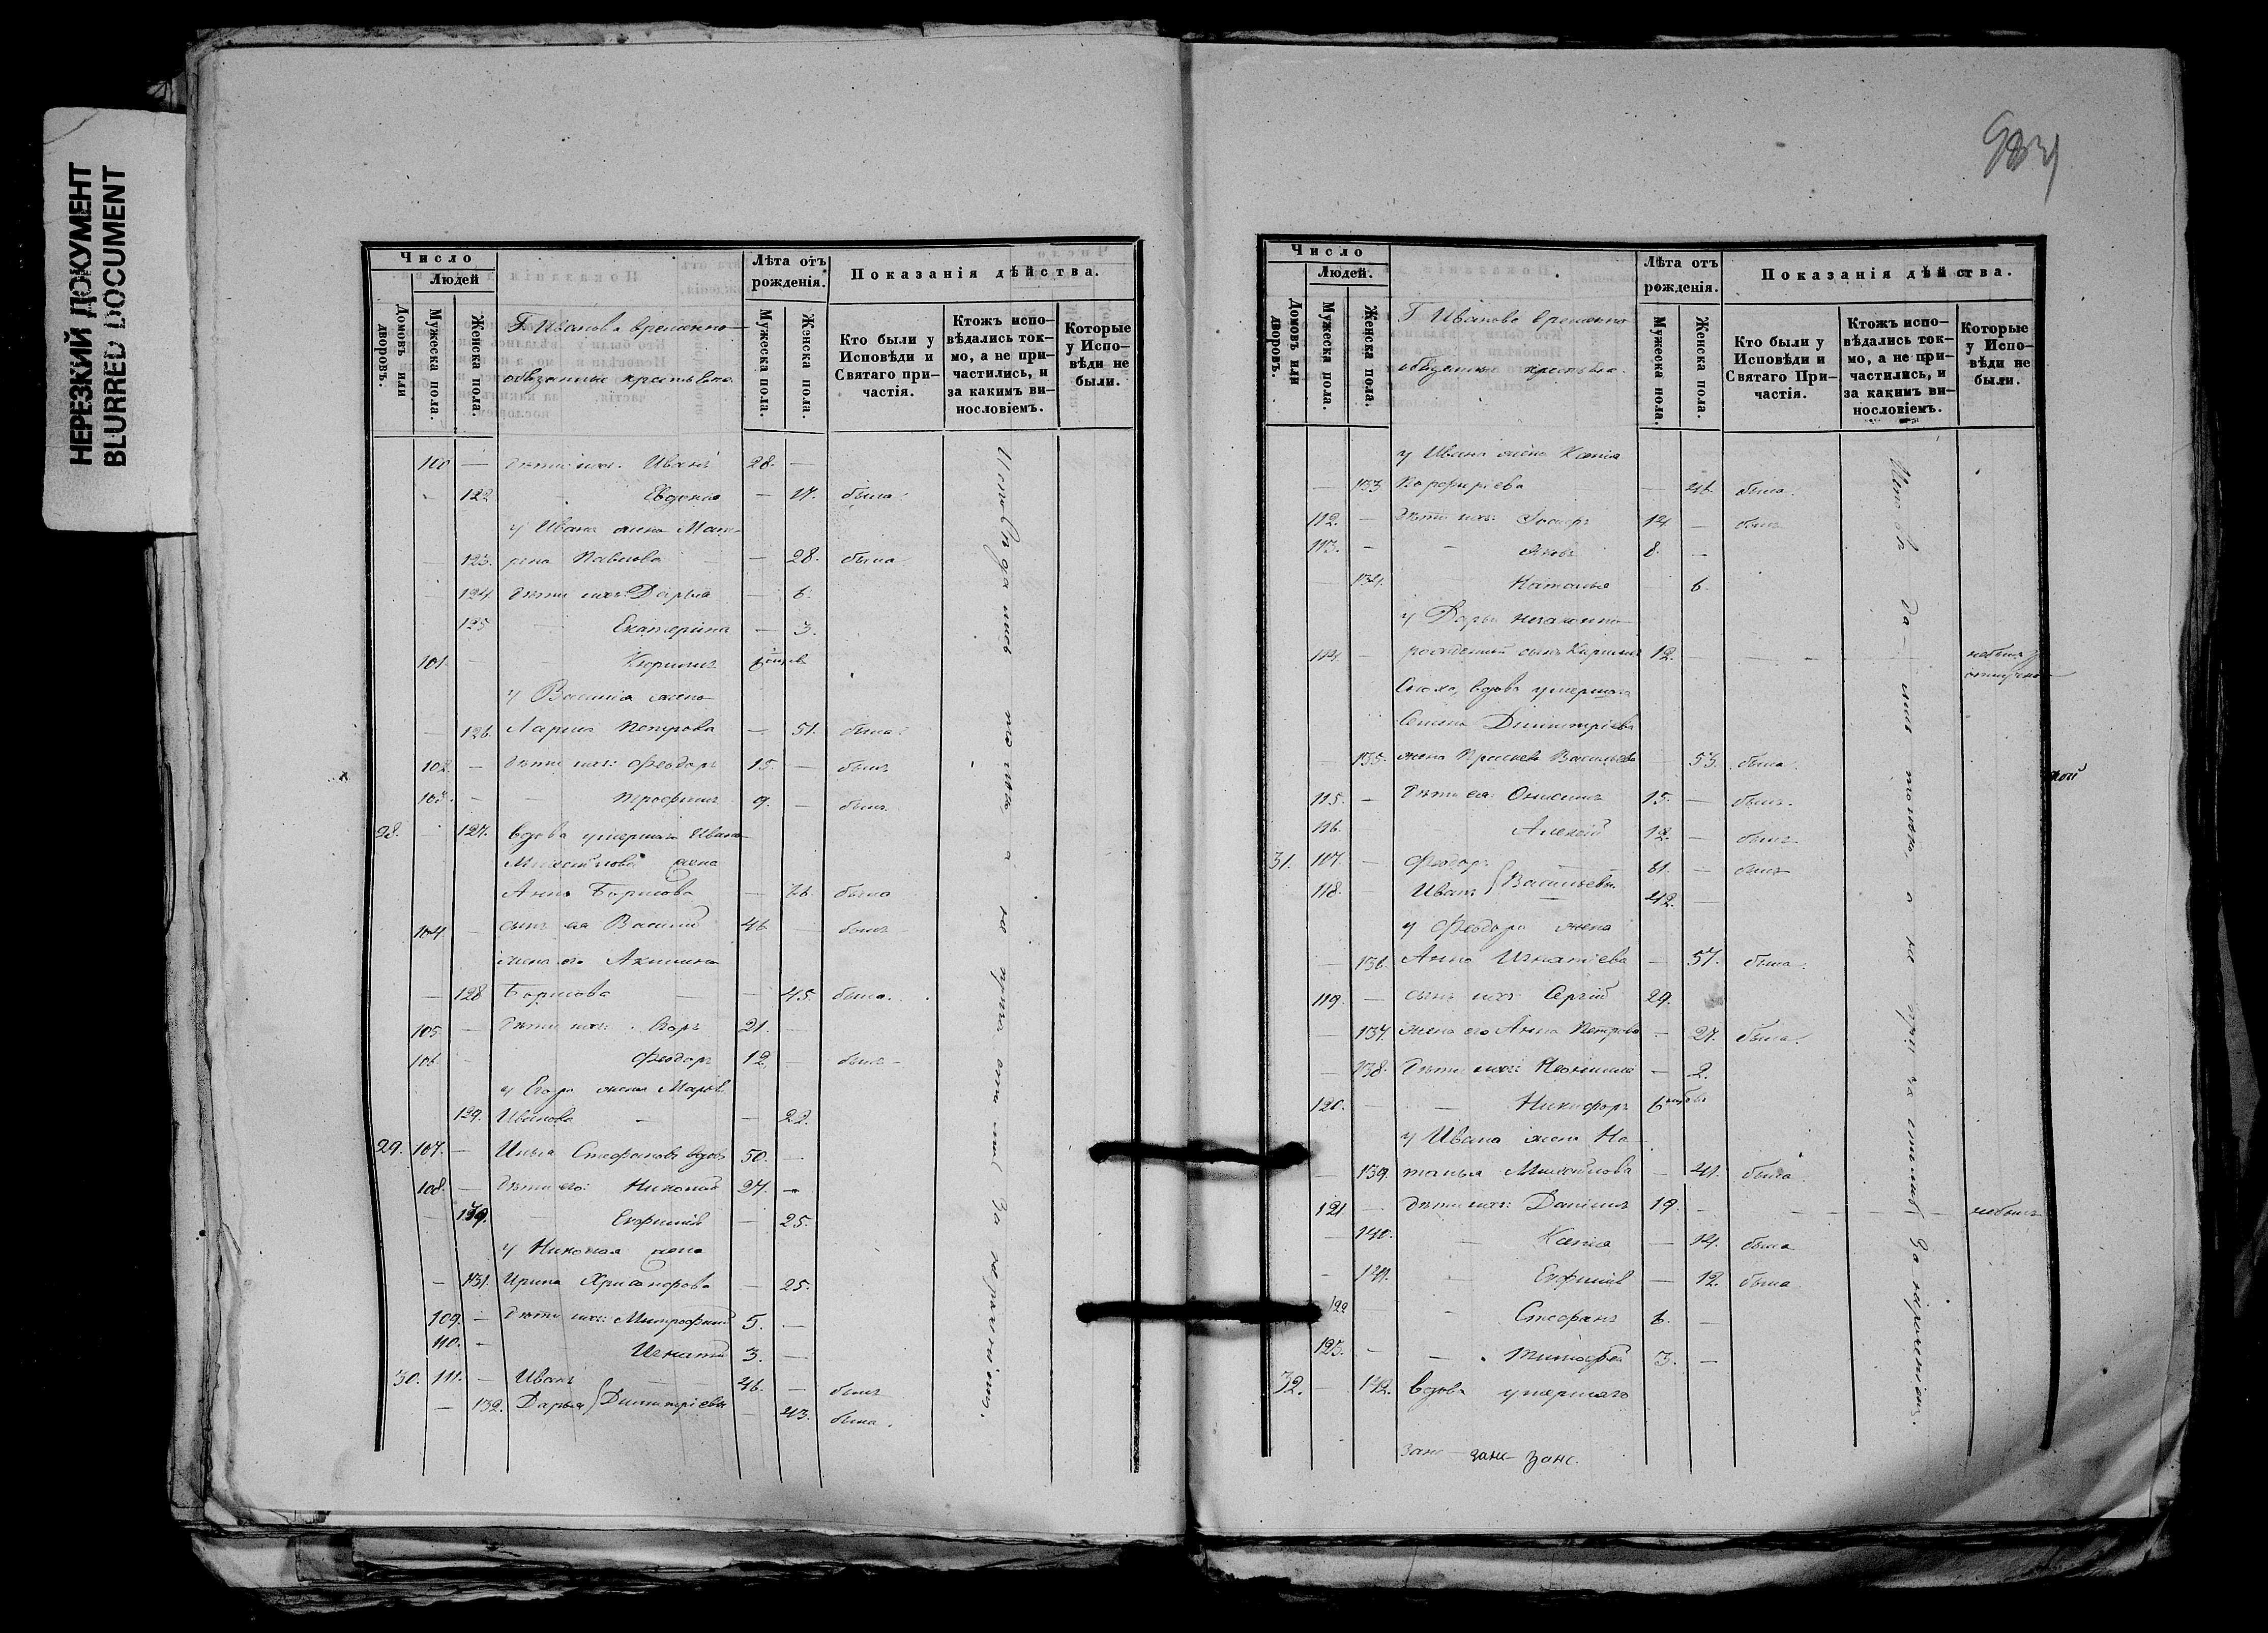 НЕРЕЗКИЙ ДОКУМЕНТ
BLURRED DOCUMENT
Число
Людей
Домовъ или дворовъ.
Мужеска пола.
Женска пола.
Г. Иванова временно-
обязанные крестьяне
Лѣта отъ рожденія.
Мужеска пола.
Женска пола.
Показанія дѣйства.
Кто были у Исповѣди и Святаго при-частія.
Ктожъ испо-вѣдались ток-мо, а не при-частились, и за какимъ ви-нословіемъ.
Которые у Испо-вѣди не были.
100 — дѣти ихъ: Иванъ 28. —
122 Евдокія — 17. была.
у Ивана жена Мат-
123. рена Павлова — 28. была
124 дѣти ихъ: Дарья — 6.
125 — Екатерина — 3.
101. — Кирилъ 6
у Василія жена
— 126. Марья Петрова — 51. была.
102. — дѣти ихъ: Феодоръ 15. — былъ
103. — — Трофимъ 9. — былъ
28. 127. вдова умершаго Ивана
Михайлова жена
Анна Борисова — была
104. — сынъ ея Василій 46 былъ
жена его Акилина
— 128 Борисова — — 45. была.
105. — дѣти ихъ: Егоръ 21. —
106 — Феодоръ 12 — былъ
у Егора жена Марья
129. Иванова — — 22.
29. 107. — Илья Стефановъ вдовъ 50. —
108. — дѣти его: Николай 27. —
Евфимія — 25.
у Николая жена
— 131. Ирина Хрисанфова — 25.
109. — дѣти ихъ: Митрофанъ 5. —
110. — Игнатій 3. —
30. 111. — Иванъ 46. — былъ
— 132. Дарья Димитріевы — 43. была.
Исповѣдались токмо а не прича
Число
Людей.
Домовъ или дворовъ.
Мужеска пола.
Женска пола.
Г. Иванова временно
обязанные крестьяне.
Лѣта отъ рожденія.
Мужеска пола.
Женска пола.
Показанія дѣйства.
Кто были у Исповѣди и Святаго При-частія.
Ктожъ испо-вѣдались ток-мо, а не при-частились, и за какимъ ви-нословіемъ.
Которые у Испо-вѣди не были.
у Ивана жена Ксенія
— 133 Порфиріева — 46. была.
112. — дѣти ихъ: 14 — былъ
113. — — Яковъ 8. —
— 134. Наталья — 6.
у Дарьи незаконно-
114. — рожденный сынъ Кирилъ 12. — — —
вдова умершаго
Семена Димитріева
135. жена Васильева 53. была.
115. — дѣти ея Онисимъ 15. — былъ.
116. Алексѣй 12. — былъ
31. 117. — Феодоръ 61. — былъ
118. — Иванъ Васильевы 42. —
у Феодора жена
— 136. Анна Игнатіева — 57. была.
119. — сынъ ихъ Сергій 29.
— 137. жена его Анна Петрова — 27. была.
— 138. дѣти ихъ: — 2.
120. — — Никифоръ 6
у Ивана жена На-
— 139. талья Михайлова — 41. была.
121 — дѣти ихъ: Даніилъ 19. — — — небылъ
— 140. — Ксенія — 14. была
— 141. — Евфимія — 12. была
122 — — Стефанъ 6. —
123. — — Тимофей 3. —
32. — 142. вдова умершаго